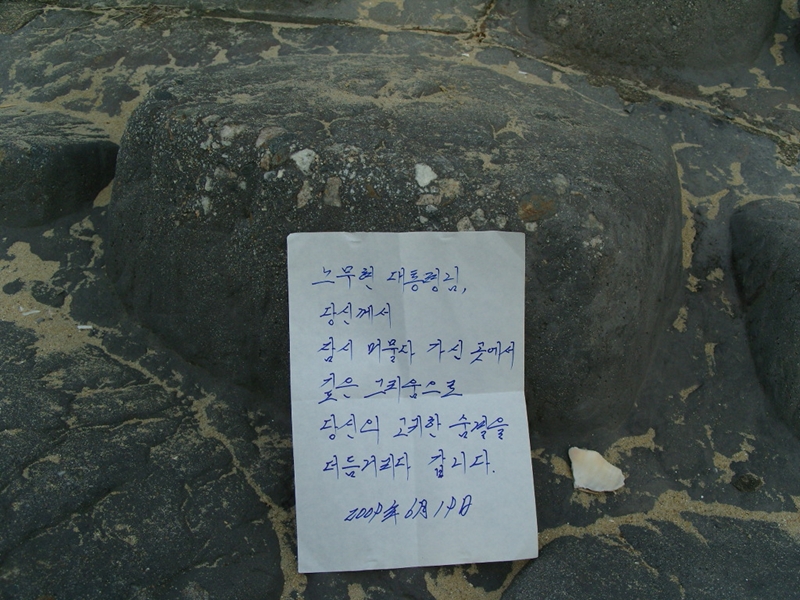 노무현 대통령님,
당신께서
잠시 머물다 가신 곳에서
깊은 그리움으로
당신의 고귀한 숨결을
더듬거리다 갑니다.
2009年 6月 19日